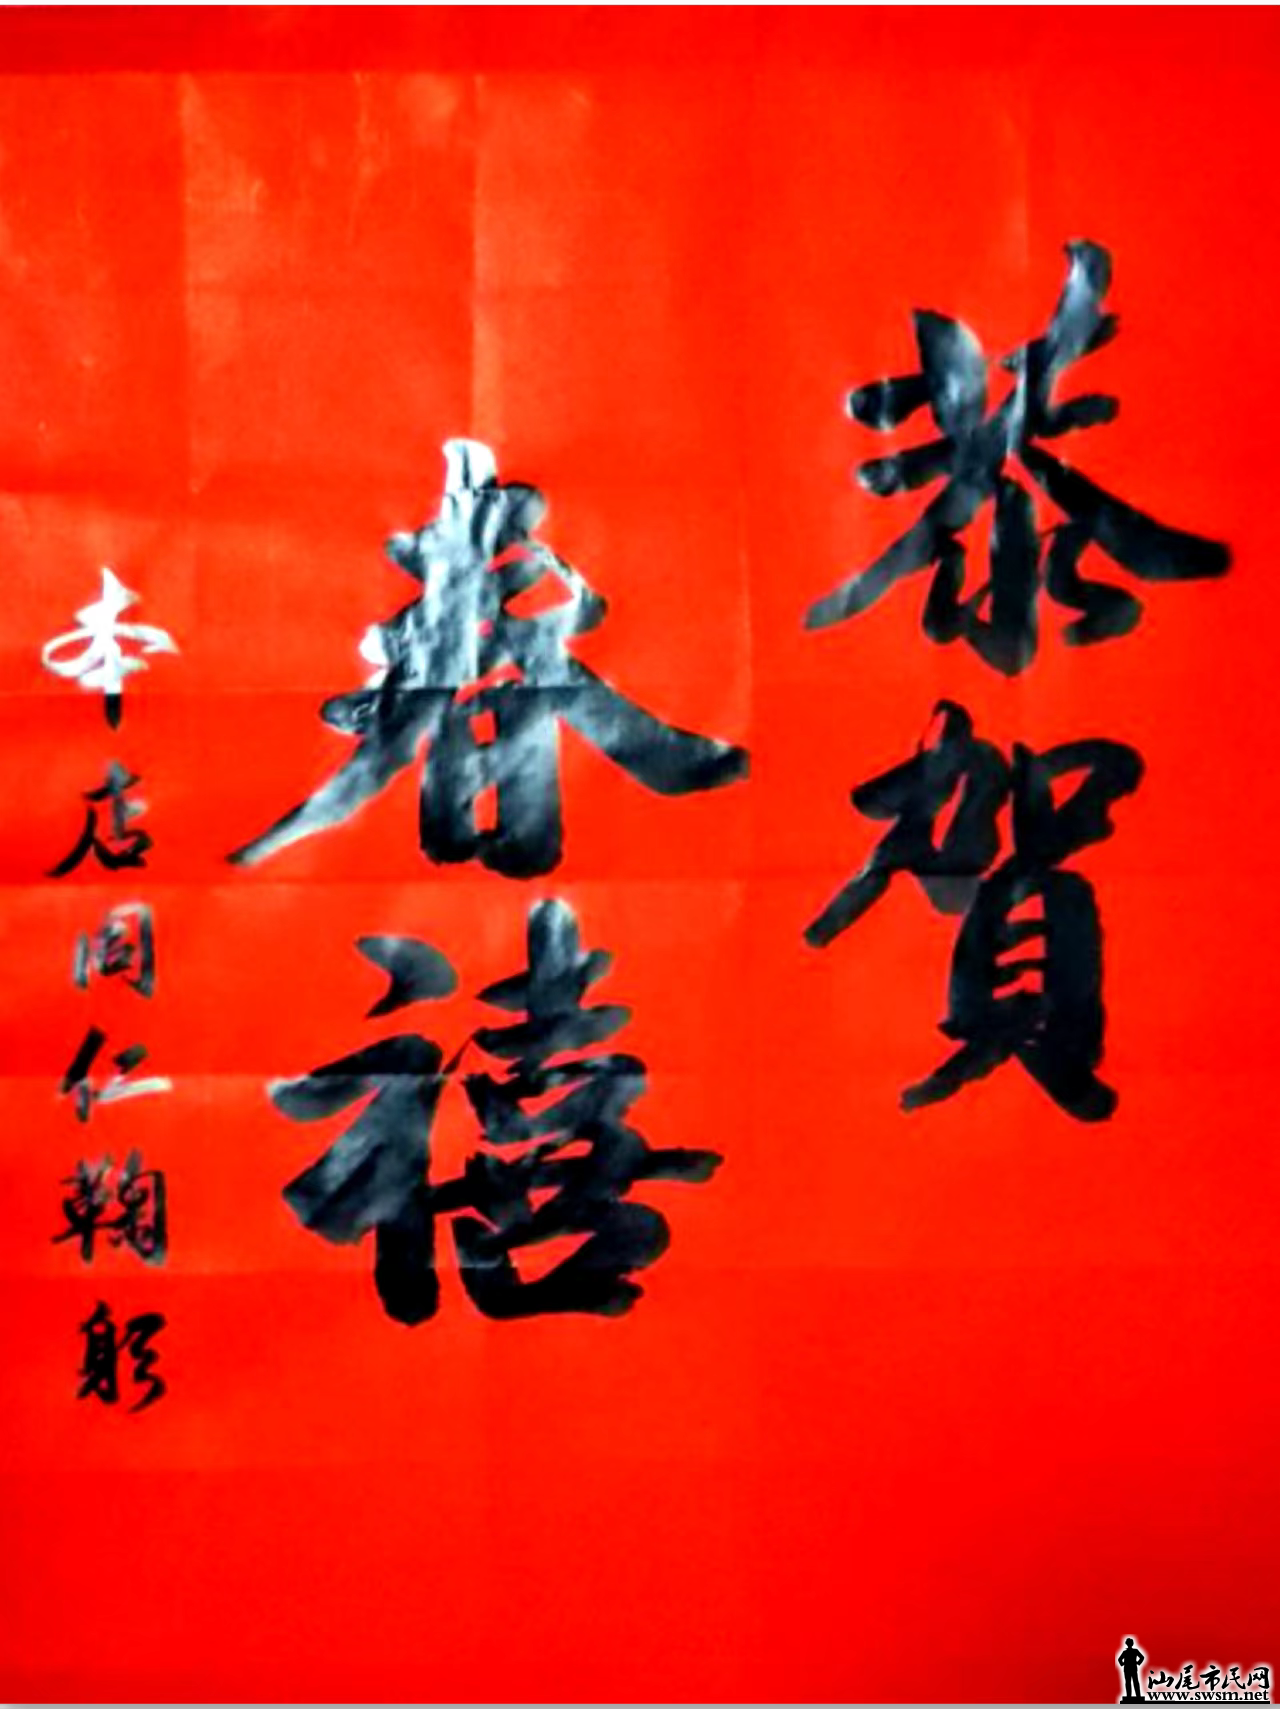 恭賀
春禧
本店同仁鞠躬
汕尾市民网
www.swsm.net